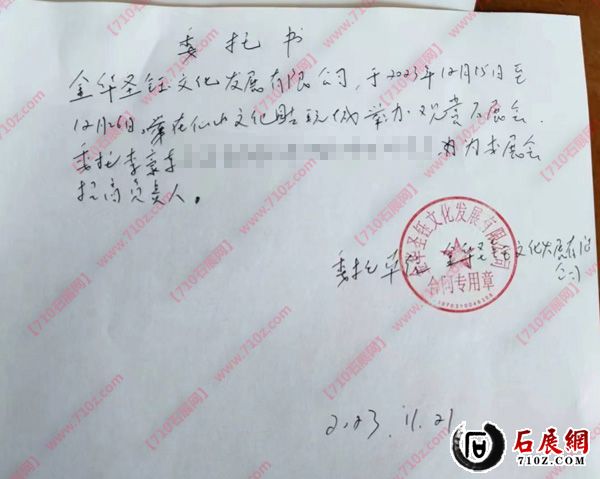 委托书
金华圣钰文化发展有限公司,于2023年12月15日至
12月26日,在仙山文化古玩城举办观赏石展会.
委托李 为本展会
招商负责人。
金华圣钰文化发展有限公司
合同专用章
委托单位 金华圣钰文化发展有限
公司
2023.11.21
石展網
710z.com
【710z石展网】
www.710z.com